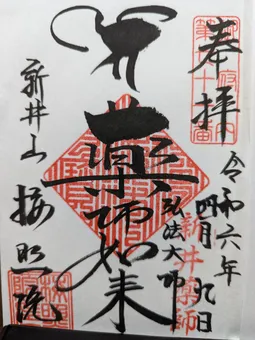 奉拝
令和六年
四月九日
弘法大師
薬師如来
新井薬師
新井山
梅照院